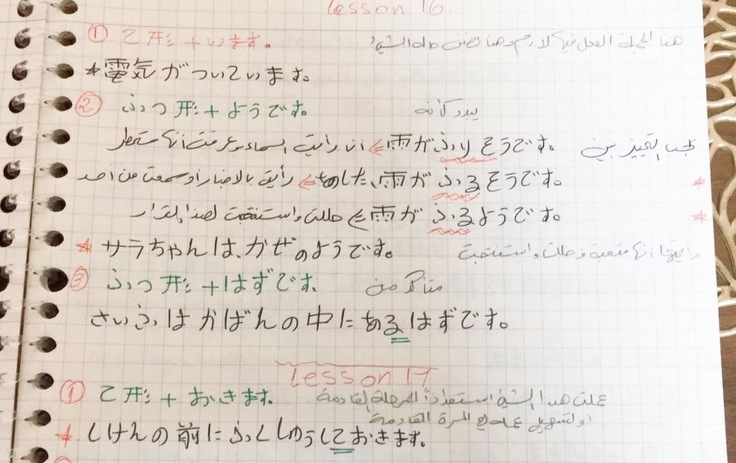 Lesson 16
① て形+います。 هنا الجملة الفعل فيها لازم وهنا نصف حالة الشيء
* 電気がついています。
② ふつう形+ようです。 يبدو كأنه
雨がふりそうです。 <= انا رأيت السماء وعرفت انها ستمطر يجب التمييز بين
* あした、雨がふるそうです。 <= رأيت بالاخبار او سمعت من احد
* 雨がふるようです。 <= حللت واستنتجت لهذا القرار
* サラちゃんは、かぜのようです。 رأيتها انها متعبة وحللت واستنتجت
③ ふつ形+はずです。 متأكد من
さいふはかばんの中にあるはずです。
Lesson 17
① て形+おきます。 عملت هذا الشيء استعدادًا للمرحلة القادمة
او لتسهيل عملي المرة القادمة
* しけんの前にふくしゅうしておきます。